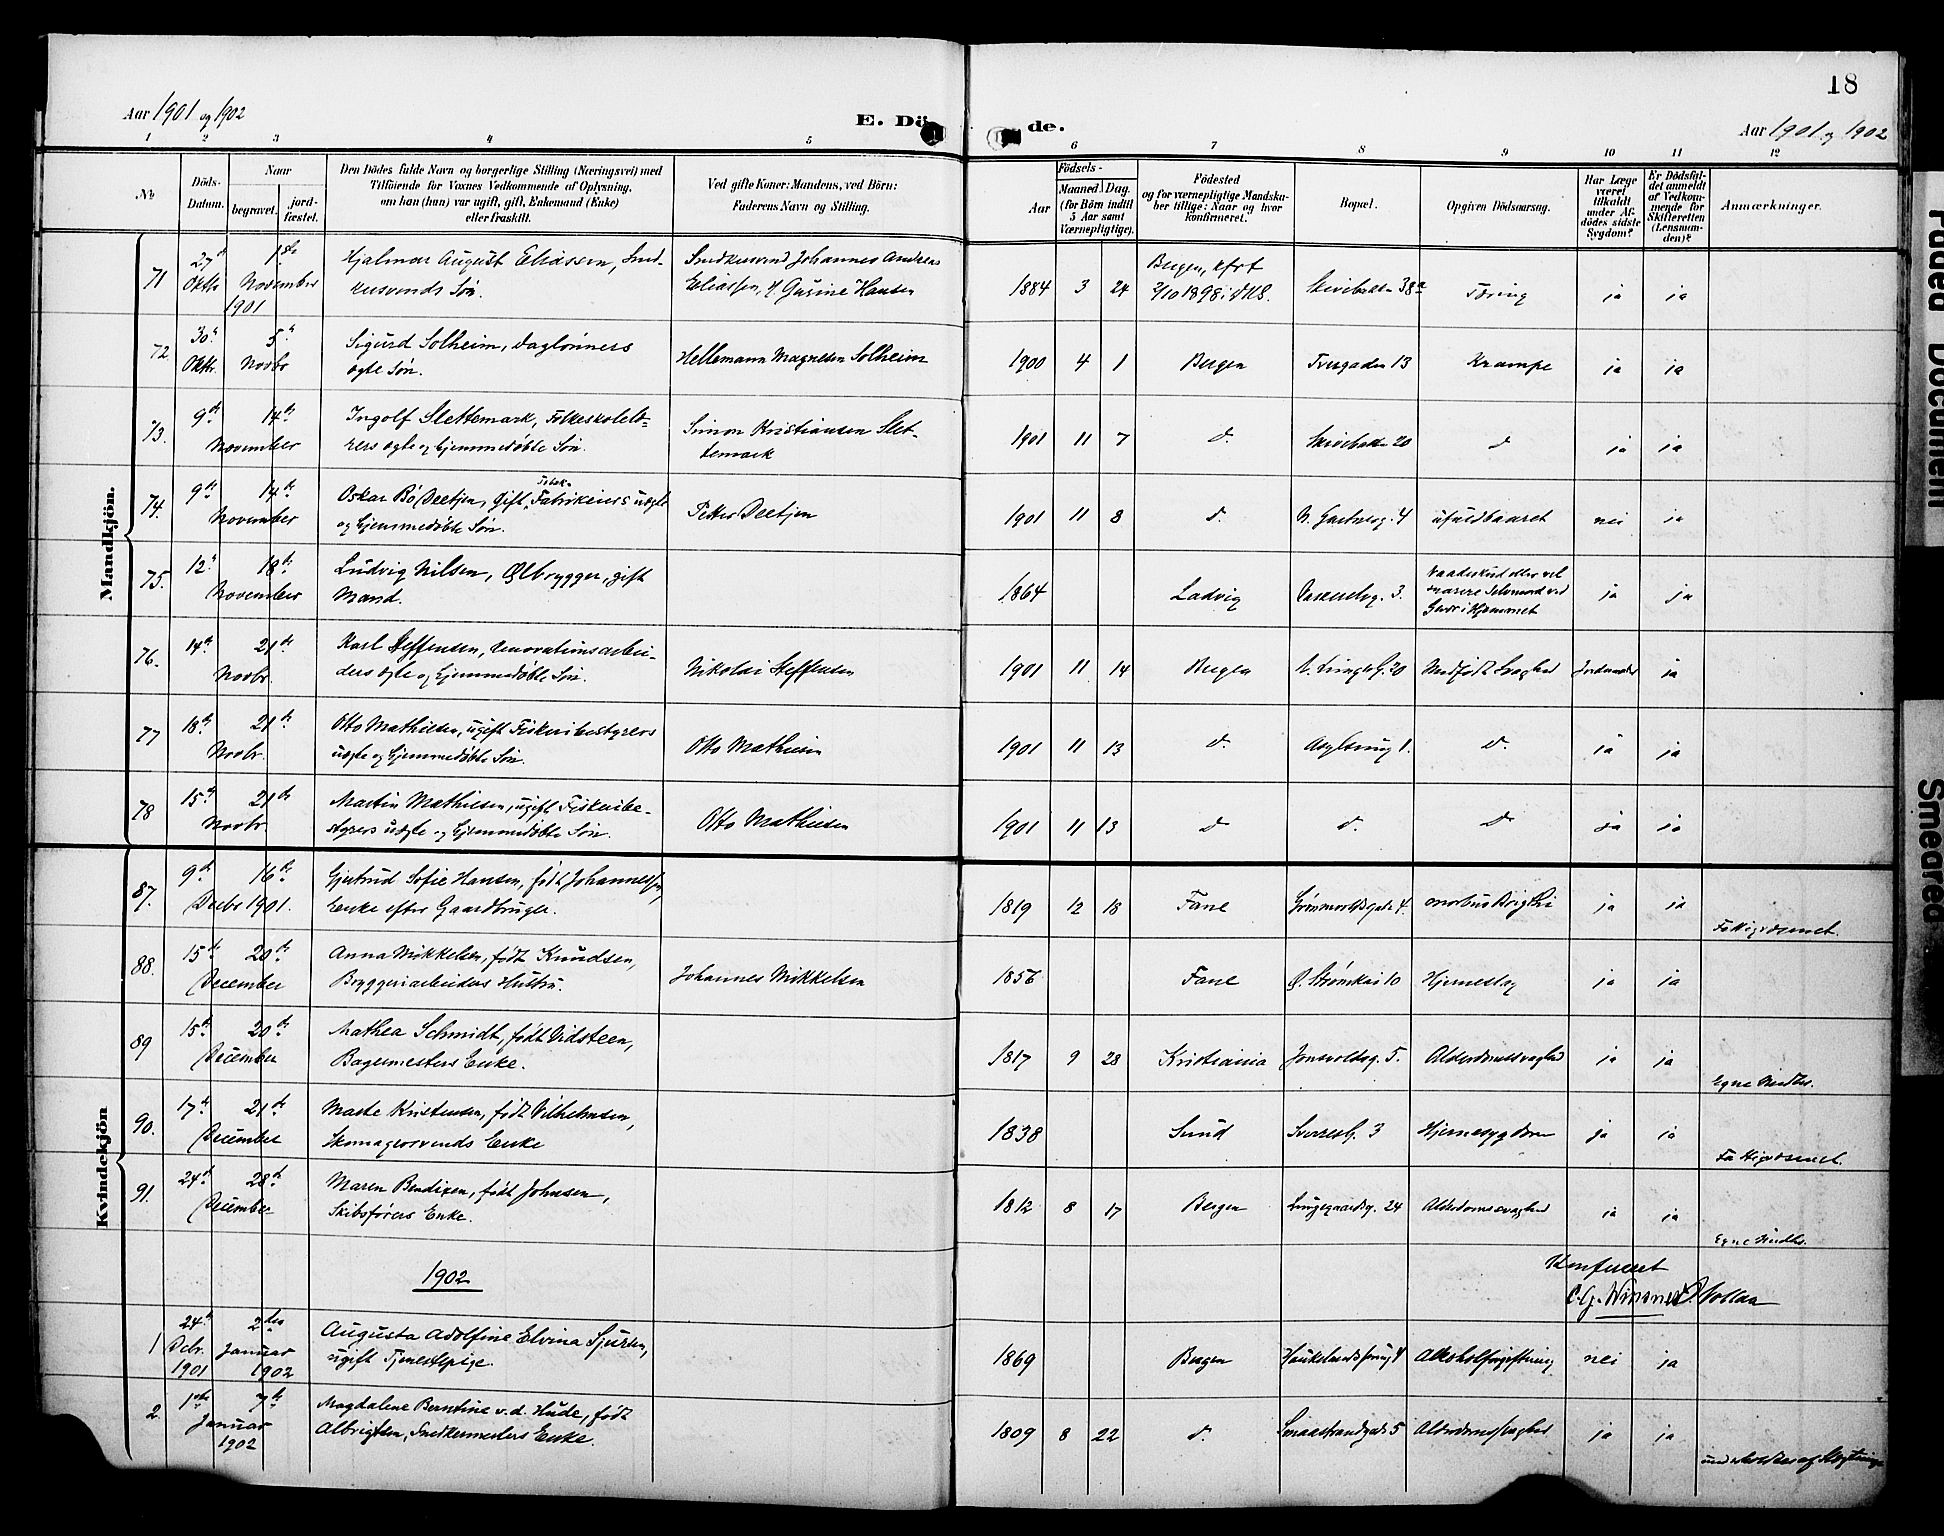 18
Aar 1901 og 1902
E. Dö
de.
Aar 1901 og 1902
1 2 3 4 5 6 7 8 9 10 11 12
No.
Döds-Datum.
Naar
begravet.
jord-fæstet.
Den Dödes fulde Navn og borgerlige Stilling (Næringsvei) med
Tilföiende for Voxnes Vedkommende af Oplysning,
om han (hun) var ugift, gift, Enkemand (Enke)
eller fraskilt.
Ved gifte Koner: Mandens, ved Börn:
Faderens Navn og Stilling.
Födsels-
Aar
Maaned. Dag.
(for Börn indtil
5 Aar samt
Værnepligtige).
Födested
og for værnepligtige Mandska-
ber tillige: Naar og hvor
konfirmeret.
Bopæl.
Opgiven Dödsaarsag.
Har Læge
været
tilkaldt
under Af-
dödes sidste
Sygdom?
Er Dödsfal-
det anmeldt
af Vedkom-
mende for
Skifteretten
(Lensman-
den)?
Anmærkninger.
Mandkjön.
71 27de Oktbr 1ste November 1901 Hjalmar August Eliassen, Sned-
kersvends Søn. Snedkersvend Johannes Andreas
Eliassen, Gusine Hansen 1884 3 24 Bergen, kfrt
2/10 1898 i Skivebakken 38a Tæring ja ja
72 30te Oktbr. 5te Novbr Sigurd Solheim, Daglønners
ægte Søn. Hellemann Magnesen Solheim 1900 4 1 Bergen Tversgaden 13 Krampe ja ja
73. 9de 14de November Ingolf Slettemark, Folkeskolelæ-
rers ægte og hjemmedøbte Søn. Simon Kristiansen Slet-
temark 1901 11 7 d. Skivebakken 20 d ja ja
74. 9de 14de November Oskar Bö Deetjen, gift Fabrikeiers uægte
og hjemmedøbte Søn. Petter Deetjen 1901 11 8 d. N. 4 ufuldbaaret nei ja
75. 12te 18de November Ludvig Nilsen, Ølbrygger, gift
Mand. 1864 Ladvig 3. Vaadeskud eller vel
snarere Selvmord ved
i Hjemmet ja ja
76. 14de 21de Novbr. Karl Steffensen, Renovationsarbei-
ders ægte og hjemmedøbte Søn. Nikolai Steffensen 1901 11 14 Bergen 20 Medfødt Svaghed Jordmoder ja
77 18de 21de Novbr. Otto Mathiesen, ugift Fiskeribestyrers
uægte og hjemmedøbte Søn. Otto Mathiesen 1901 11 13 d. 1. d. ja ja
78 15de 21de Novbr. Martin Mathiesen, ugift Fiskeribe-
styrers uægte og hjemmedøbte Søn. Otto Mathiesen 1901 11 13 d d. d ja ja
Kvindekjön
87. 9de 16de Decbr 1901. Gjertrud Sofie Hansen, født Johannessen,
Enke efter Gaardbruger. 1819 12 18 Fane 4. morbus Brigthi ja ja Fattigvæsenet.
88. 15de 20de December Anna Mikkelsen, født Knudsen,
Bryggeriarbeiders Hustru. Johannes Mikkelsen 1856 Fane Ø. Strømkai 10 Hjerneslag ja ja
89 15de 20de December Mathea Schmidt, født Vidsteen,
Bagermesters Enke. 1817 9 28 Kristiania Jonsvoldsg. 5. Alderdomssvaghed ja ja Egne Midler.
90. 17de 21de December Marte Kristensen, født Vilhelmsen,
Skomagersvends Enke 1838 Sund Sverresg. 3 Hjernesygdom ja ja Fattigvæsenet.
91. 24de 28de December Maren Bendixen, født Johnsen,
Skibsførers Enke. 1812 8 17 Bergen Lungegaardsg. 24 Alderdomssvaghed ja ja Egne Midler.
1902
Konfereret
1 24de Decbr. 1901 2den Januar 1902 Augusta Adolfine Elvina Sjursen,
ugift Tjenestepige. 1869 Bergen 4 Alkoholforgiftning nei ja
2. 1ste 7de Januar 1902 Magdalene Berntine v. d. Hude, født
Albrigtsen, Snedkermesters Enke. 1809 8 22 d. Smaastrandgade 5 Alderdomssvaghed ja ja
Faded Document
Smeared